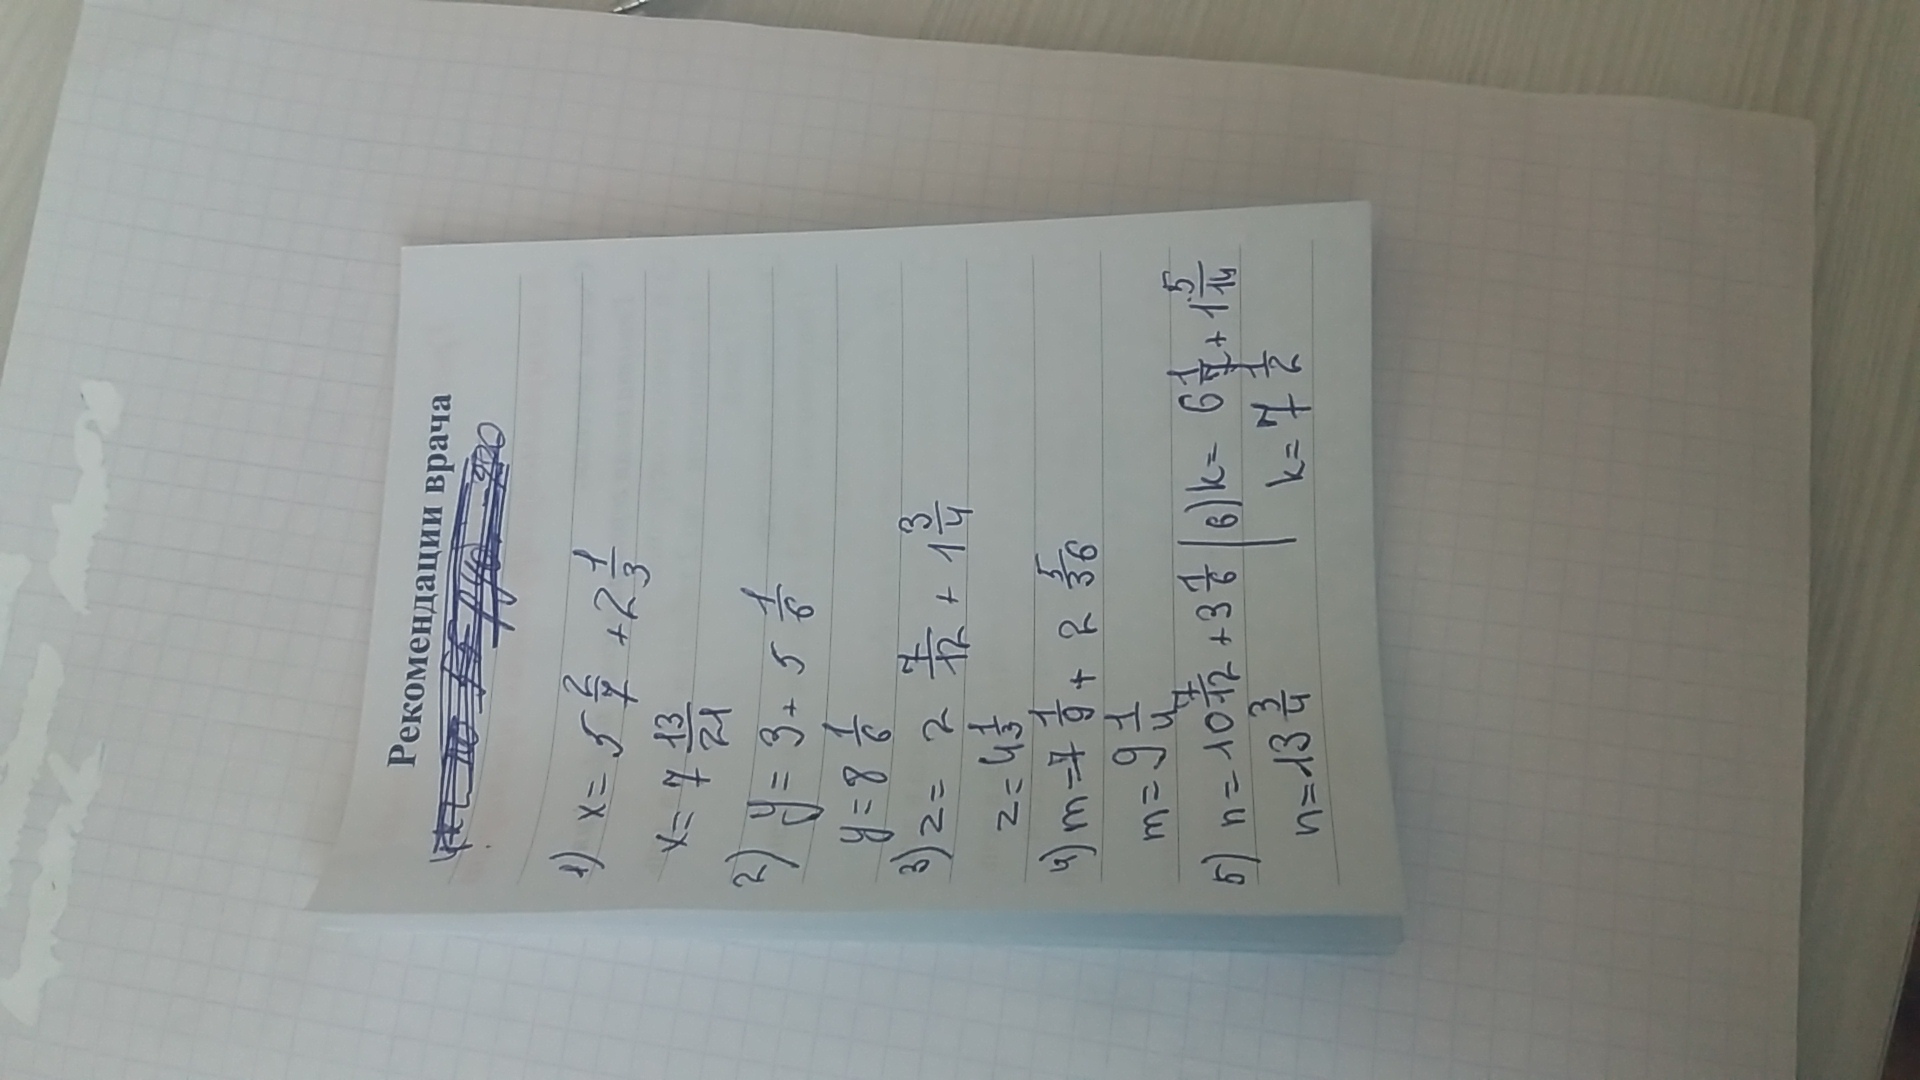 Рекомендации врача
1) x = 5 2/7 + 2 1/3
x = 7 13/21
2) y = 3 + 5 1/6
y = 8 1/6
3) z = 2 7/12 + 1 3/4
z = 4 1/3
4) m = 7 1/9 + 2 5/36
m = 9 1/4
5) n = 10 7/12 + 3 1/6
n = 13 3/4
6) k = 6 1/7 + 1 5/14
k = 7 1/2